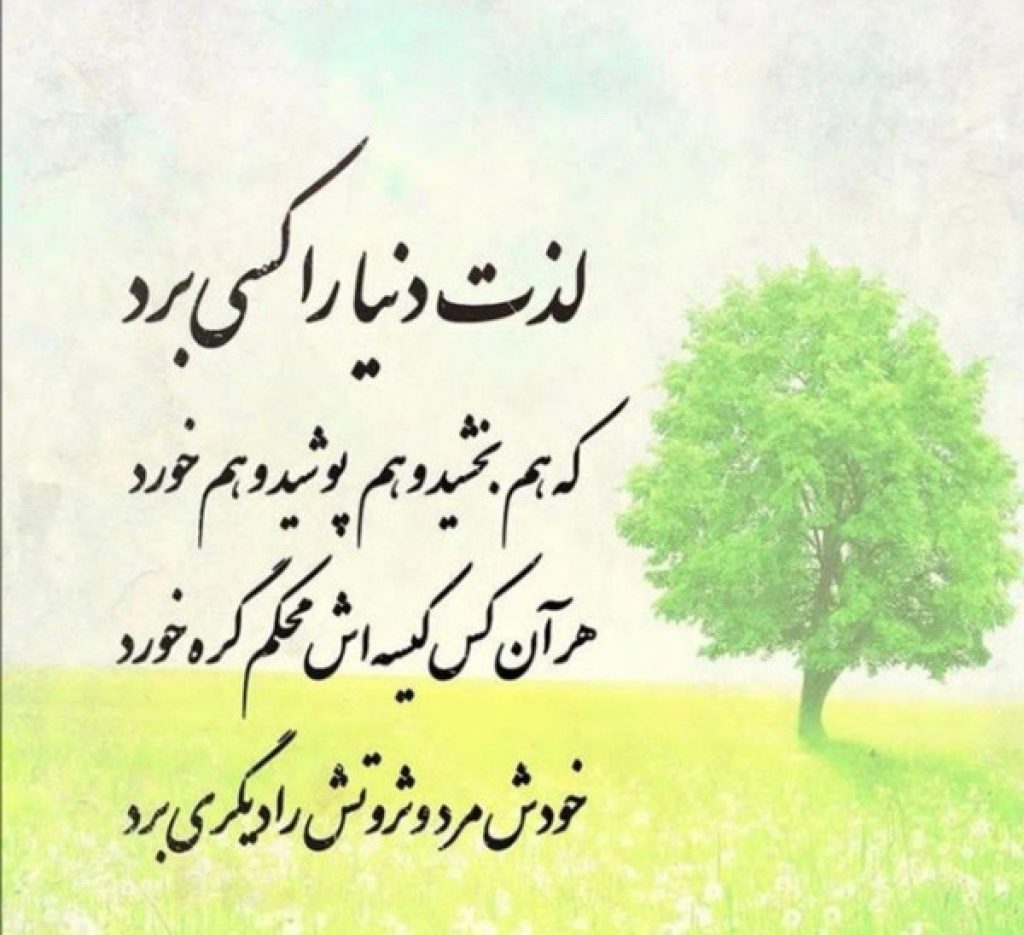 لذت دنیا را کسی برد
که هم بخشید و هم پوشید و هم خورد
هر آن کس کیسه اش محکم گره خورد
خودش مرد و ثروتش را دیگری برد